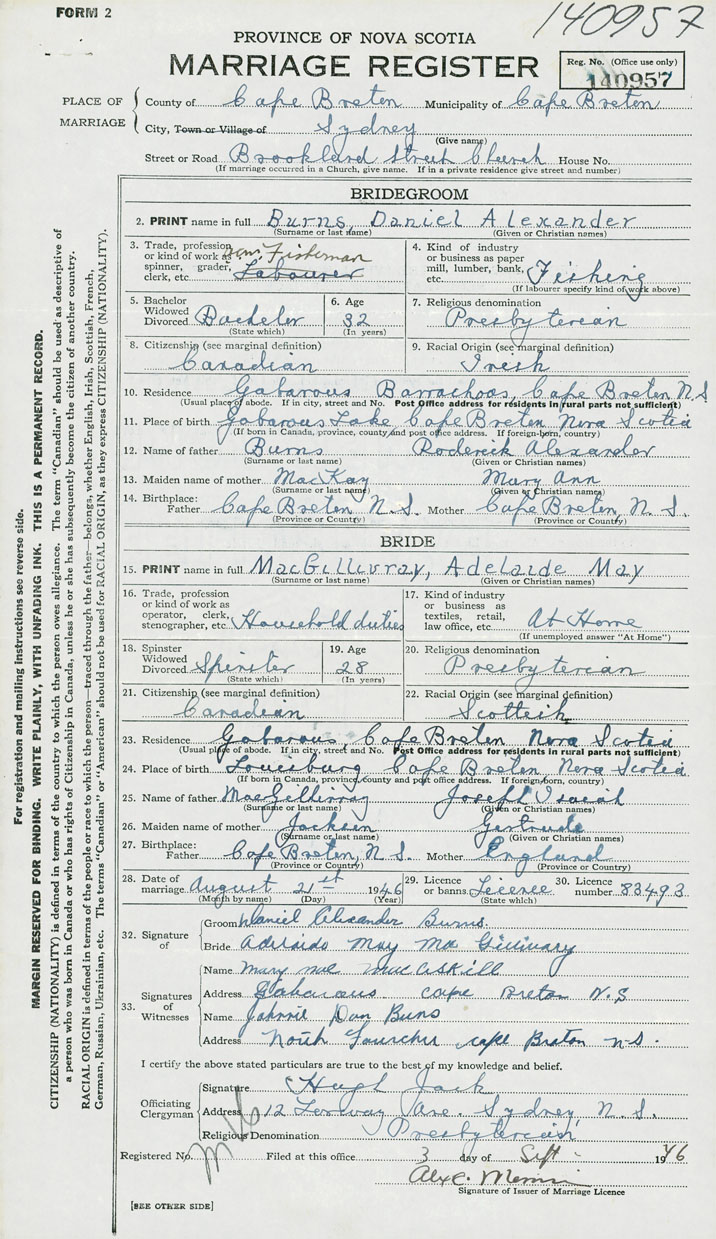 FORM 2
140957
PROVINCE OF NOVA SCOTIA
MARRIAGE REGISTER
Reg. No. (Office use only)
140957
PLACE OF MARRIAGE
County of Cape Breton Municipality of Cape Breton
City, Town or Village of Sydney
(Give name)
Street or Road Brookland Street Church House No.
(If marriage occurred in a Church, give name. If in a private residence give street and number)
BRIDEGROOM
2. PRINT name in full Burns, Daniel Alexander
(Surname or last name) (Given or Christian names)
3. Trade, profession or kind of work as spinner, grader, clerk, etc. Fisherman Labourer
4. Kind of industry or business as paper mill, lumber, bank, etc. Fishing
(If labourer specify kind of work above)
5. Bachelor Widowed Divorced Bachelor
(State which)
6. Age 32
(In years)
7. Religious denomination
Presbyterian
8. Citizenship (see marginal definition)
Canadian
9. Racial Origin (see marginal definition)
Irish
10. Residence Gabarous Barrachoas, Cape Breton N S
(Usual place of abode. If in city, street and No. Post Office address for residents in rural parts not sufficient)
11. Place of birth Gabarous Lake Cape Breton Nova Scotia
(If born in Canada, province, county and post office address. If foreign-born, country)
12. Name of father Burns Roderick Alexander
(Surname or last name) (Given or Christian names)
13. Maiden name of mother MacKay Mary Ann
(Surname or last name) (Given or Christian names)
14. Birthplace: Father Cape Breton N. S. Mother Cape Breton, N. S.
(Province or Country) (Province or Country)
BRIDE
15. PRINT name in full MacGillivray, Adelaide May
(Surname or last name) (Given or Christian names)
16. Trade, profession or kind of work as operator, clerk, stenographer, etc. Household duties
17. Kind of industry or business as textiles, retail, law office, etc. At Home
(If unemployed answer "At Home")
18. Spinster Widowed Divorced Spinster
(State which)
19. Age 28
(In years)
20. Religious denomination
Presbyterian
21. Citizenship (see marginal definition)
Canadian
22. Racial Origin (see marginal definition)
Scottish
23. Residence Gabarous, Cape Breton Nova Scotia
(Usual place of abode. If in city, street and No. Post Office address for residents in rural parts not sufficient)
24. Place of birth Louisburg Cape Breton Nova Scotia
(If born in Canada, province, county and post office address. If foreign-born, country)
25. Name of father MacGillivray Joseph Isaiah
(Surname or last name) (Given or Christian names)
26. Maiden name of mother Jackson Gertrude
(Surname or last name) (Given or Christian names)
27. Birthplace: Father Cape Breton, N S. Mother England
(Province or Country) (Province or Country)
28. Date of marriage August 21st 1946
(Month by name) (Day) (Year)
29. Licence or banns. Licence
(State which)
30. Licence number 83493
32. Signature of
Groom Daniel Alexander Burns.
Bride Adelaide May Mac Gillivary
33. Signatures of Witnesses
Name Mary Mac Askill
Address Gabarous Cape Breton N.S
Name Johnnie Dan Buns
Address North cape Breton n.s.
I certify the above stated particulars are true to the best of my knowledge and belief.
Officiating Clergyman
Signature Hugh Jack
Address 12 Ave. Sydney, N. S.
Religious Denomination Presbyterian
Registered No. Filed at this office 3 day of Sept 1946
Signature of Issuer of Marriage Licence
[SEE OTHER SIDE]
For registration and mailing instructions see reverse side.
MARGIN RESERVED FOR BINDING. WRITE PLAINLY, WITH UNFADING INK. THIS IS A PERMANENT RECORD.
CITIZENSHIP (NATIONALITY) is defined in terms of the country to which the person owes allegiance. The term "Canadian" should be used as descriptive of
a person who was born in Canada or who has rights of Citizenship in Canada, unless he or she has subsequently become the citizen of another country.
RACIAL ORIGIN is defined in terms of the people or race to which the person—traced through the father—belongs, whether English, Irish, Scottish, French,
German, Russian, Ukrainian, etc. The terms "Canadian" or "American" should not be used for RACIAL ORIGIN, as they express CITIZENSHIP (NATIONALITY).